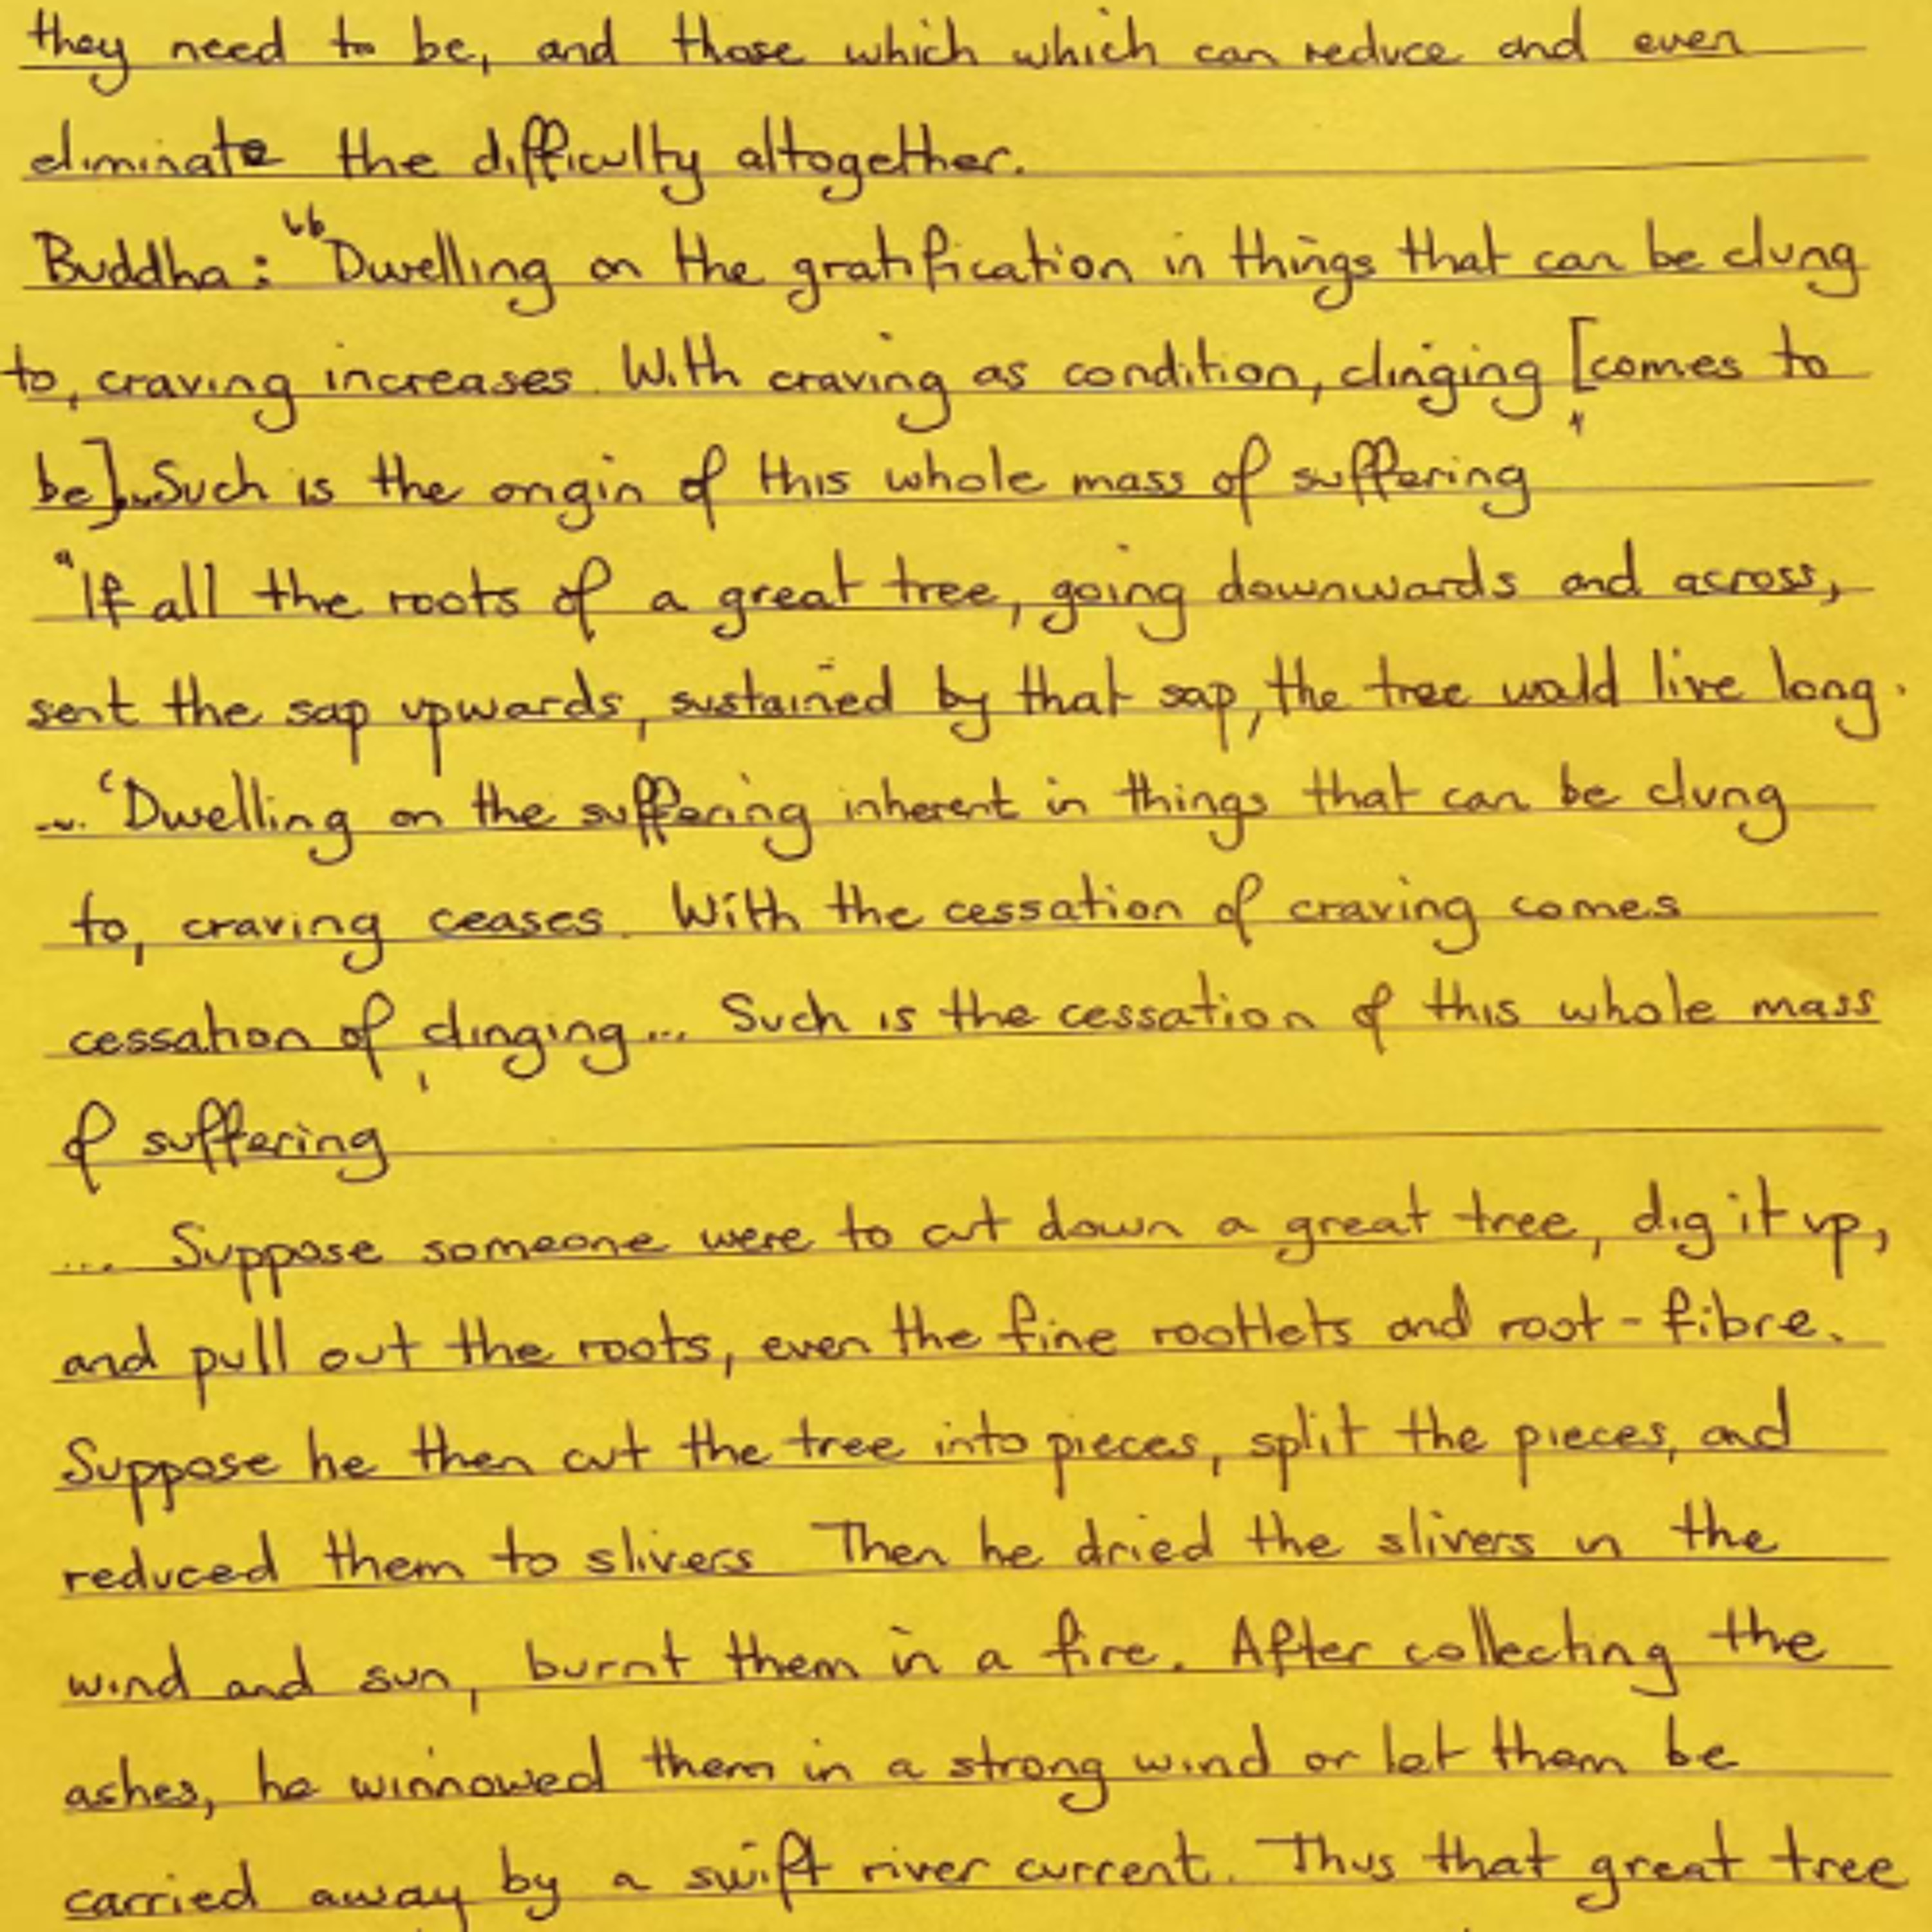 they need to be, and those which which can reduce and even
eliminate the difficulty altogether.
Buddha: "Dwelling on the gratification in things that can be clung
to, craving increases. With craving as condition, clinging [comes to
be]... Such is the origin of this whole mass of suffering
"If all the roots of a great tree, going downwards and across,
sent the sap upwards, sustained by that sap, the tree would live long.
... 'Dwelling on the suffering inherent in things that can be clung
to, craving ceases. With the cessation of craving comes
cessation of clinging... Such is the cessation of this whole mass
of suffering
... Suppose someone were to cut down a great tree, dig it up,
and pull out the roots, even the fine rootlets and root-fibre.
Suppose he then cut the tree into pieces, split the pieces, and
reduced them to slivers. Then he dried the slivers in the
wind and sun, burnt them in a fire. After collecting the
ashes, he winnowed them in a strong wind or let them be
carried away by a swift river current. Thus that great tree